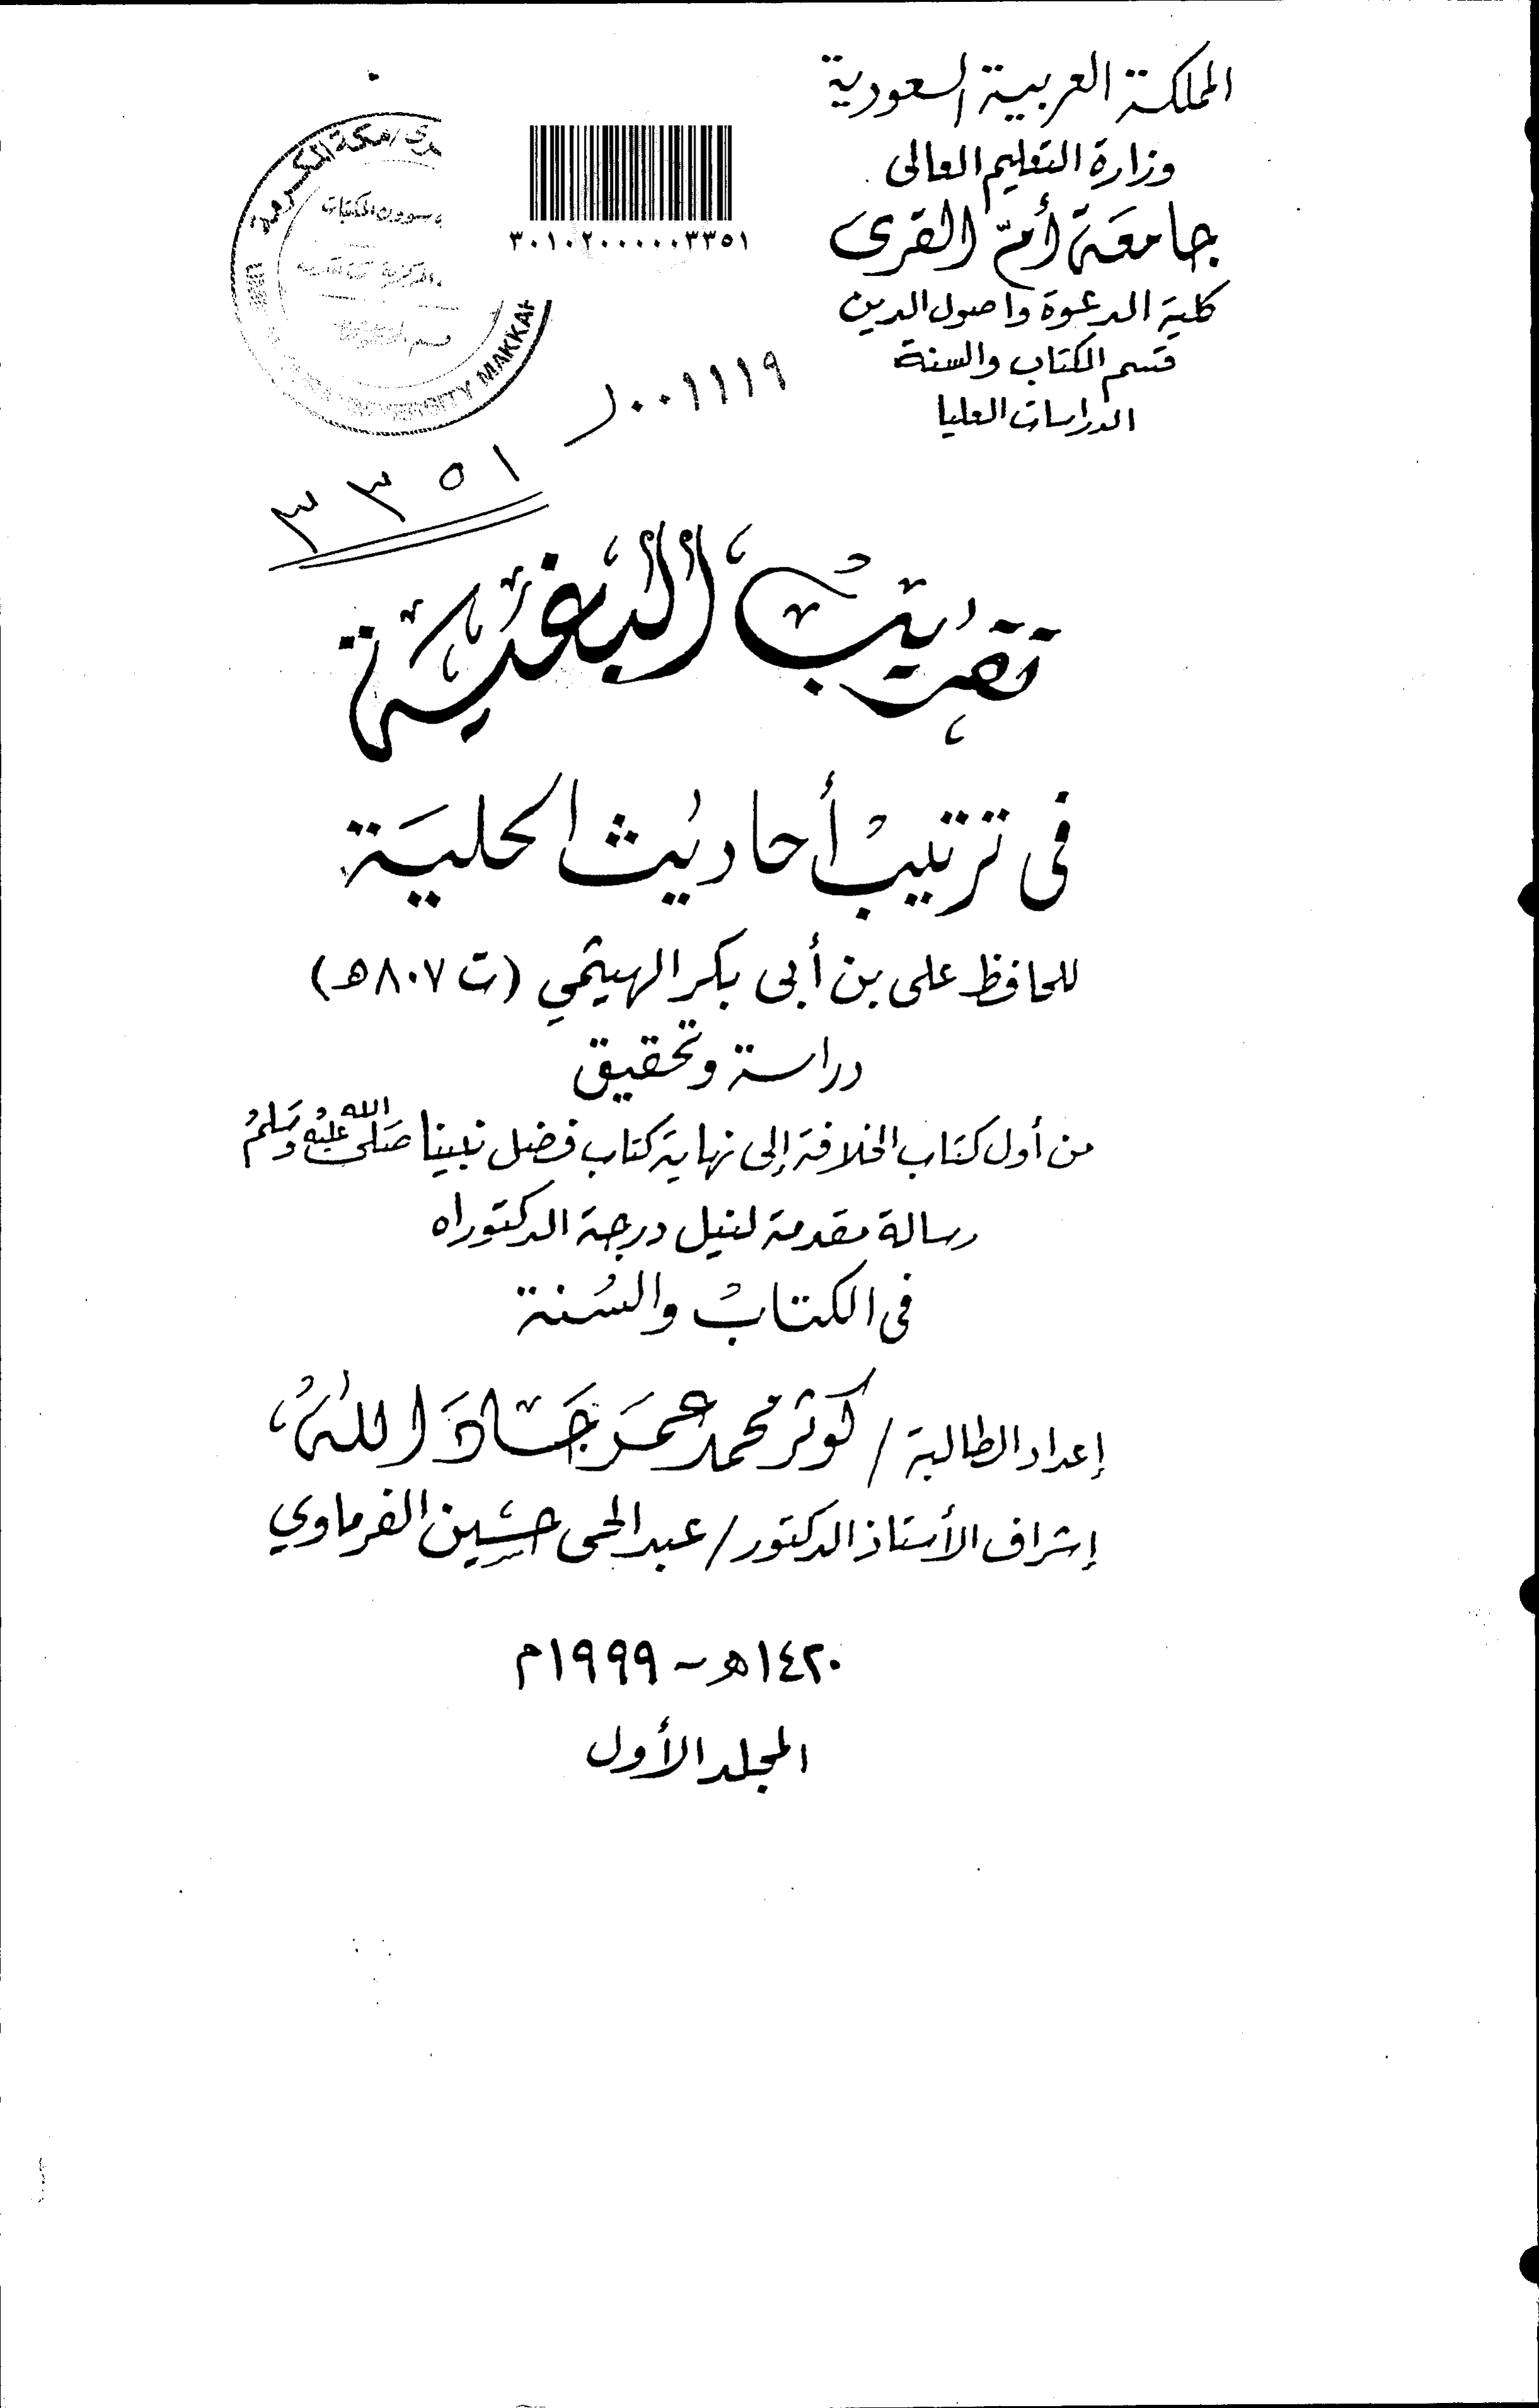 المملكة العربية السعودية
وزارة التعليم العالى
جامعة أمّ القرى
كلية الدعوة واصول الدين
قسم الكتاب والسنة
الدراسات العليا
٣٠١٠٢٠٠٠٠٠٣٣٥١
مكة المكرمة
UNIVERSITY MAKKAH
٠٠١١١٩ر
٣٣٥١
تقريب البغية
فى ترتيب أحاديث الحلية
للحافظ على بن أبى بكر الهيثمي (ت ٨٠٧هـ)
دراسة وتحقيق
من أول كتاب الخلافة إلى نهاية كتاب فضل نبينا صلى الله عليه وسلم
رسالة مقدمة لنيل درجة الدكتوراه
فى الكتاب والسُنة
إعداد الطالبة / كوثر محمد عمر جاد الله
إشراف الأستاذ الدكتور / عبد الحى حسين الفرماوي
١٤٢٠هـ - ١٩٩٩م
المجلد الأول